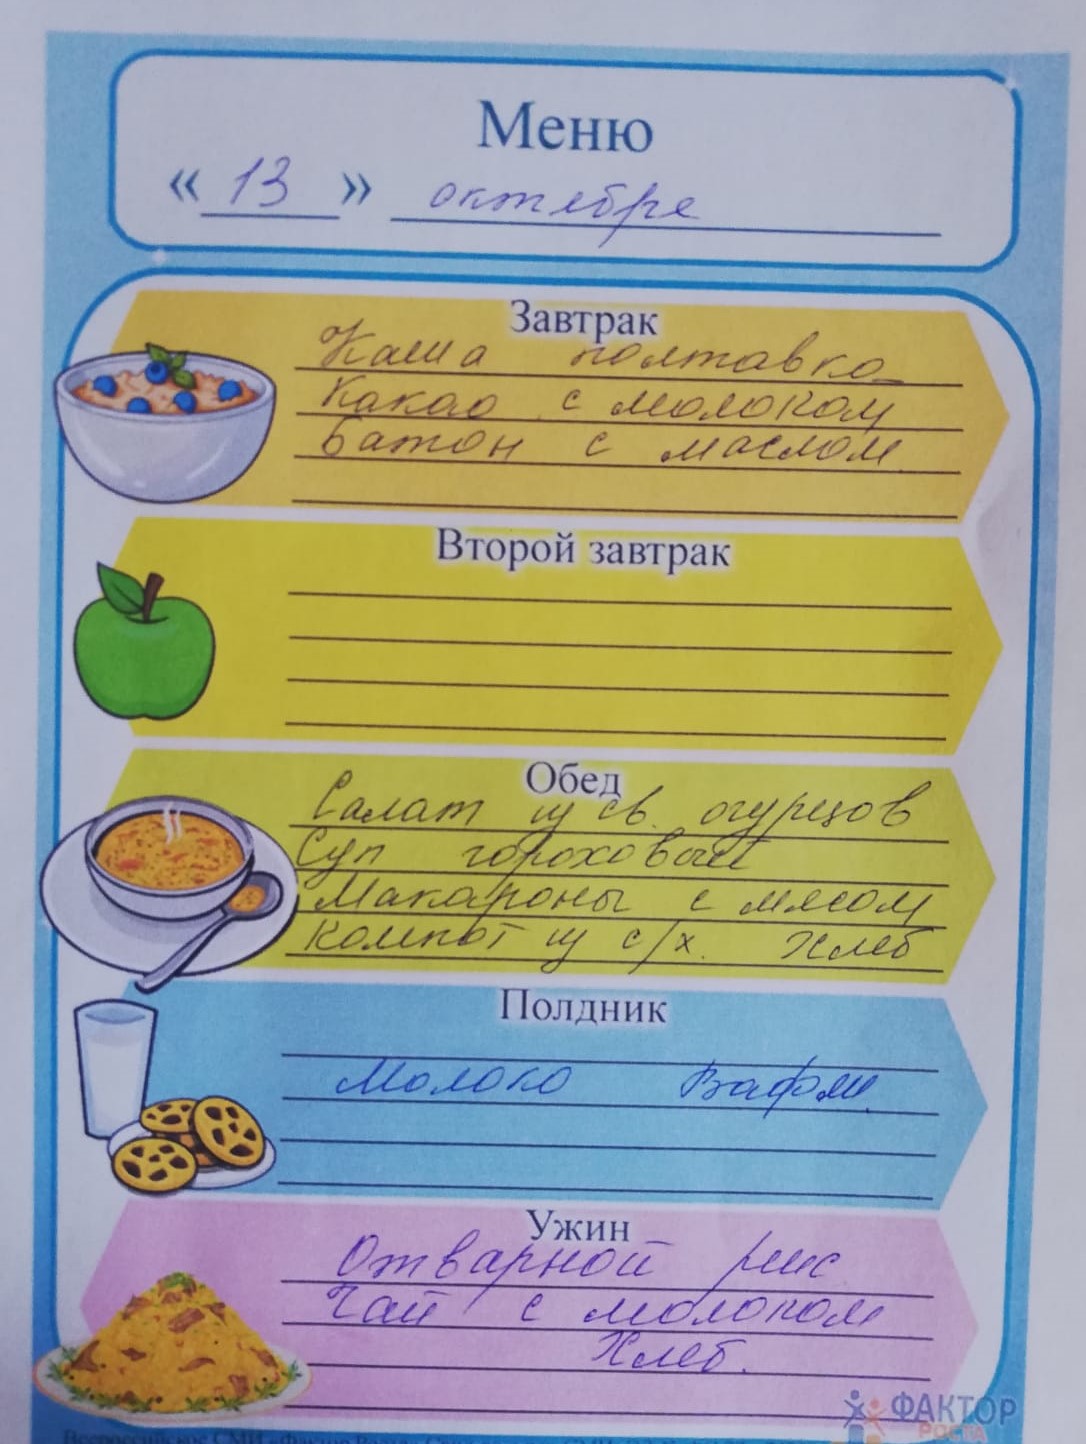 Меню
« 13 » октября
Завтрак
Каша полтавка
Какао с молоком
Батон с маслом
Второй завтрак
Обед
Салат из св. огурцов
Суп гороховый
Макароны с мясом
Компот из с/х. Хлеб
Полдник
Молоко Вафли
Ужин
Отварной рис
Чай с молоком
Хлеб.
ФАКТОР
РОСТА